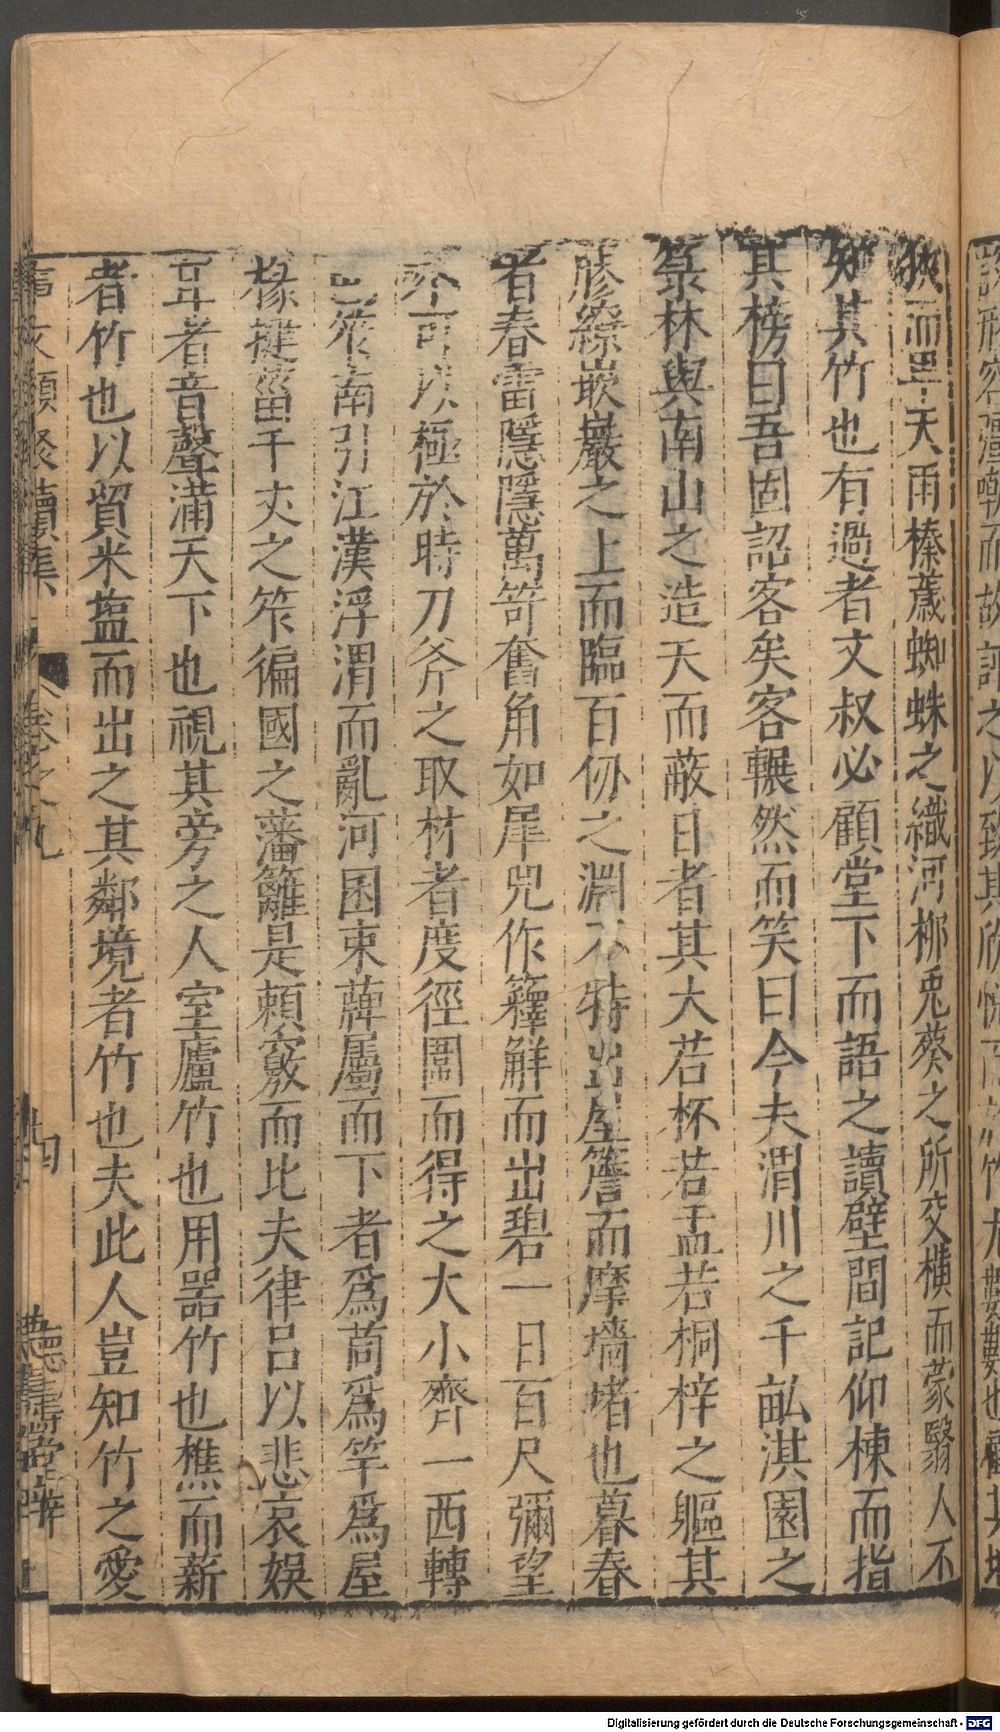 狹而畢天雨榛薉蜘蛛之織河栁兎葵之所交横而蒙翳人不
知其竹也有過者文叔必顧堂下而語之讀壁間記仰棟而指
其榜曰吾固詔客矣客輾然而笑曰今夫渭川之千畆淇園之
籙林與南山之造天而蔽日者其大若杯若盂若桐梓之軀其
膠繚嶔巖之上而臨百仞之淵不特出屋簷而摩墻堵也暮春
者春雷隱隱萬笴奮角如犀兕作籜解而出碧一日百尺彌望
不可以極於時刀斧之取材者度徑圍而得之大小齊一西轉
筰南引江漢浮渭而亂河困束蔶屬而下者爲茼爲竿爲屋
椽揵菑千丈之笮徧國之藩籬是頼竅而比夫律吕以悲哀娯
耳者音聲滿天下也視其旁之人室廬竹也用噐竹也樵而薪
者竹也以貿米塩而出之其鄰境者竹也夫此人豈知竹之愛
文類聚續集 卷之九 四 德壽堂梓